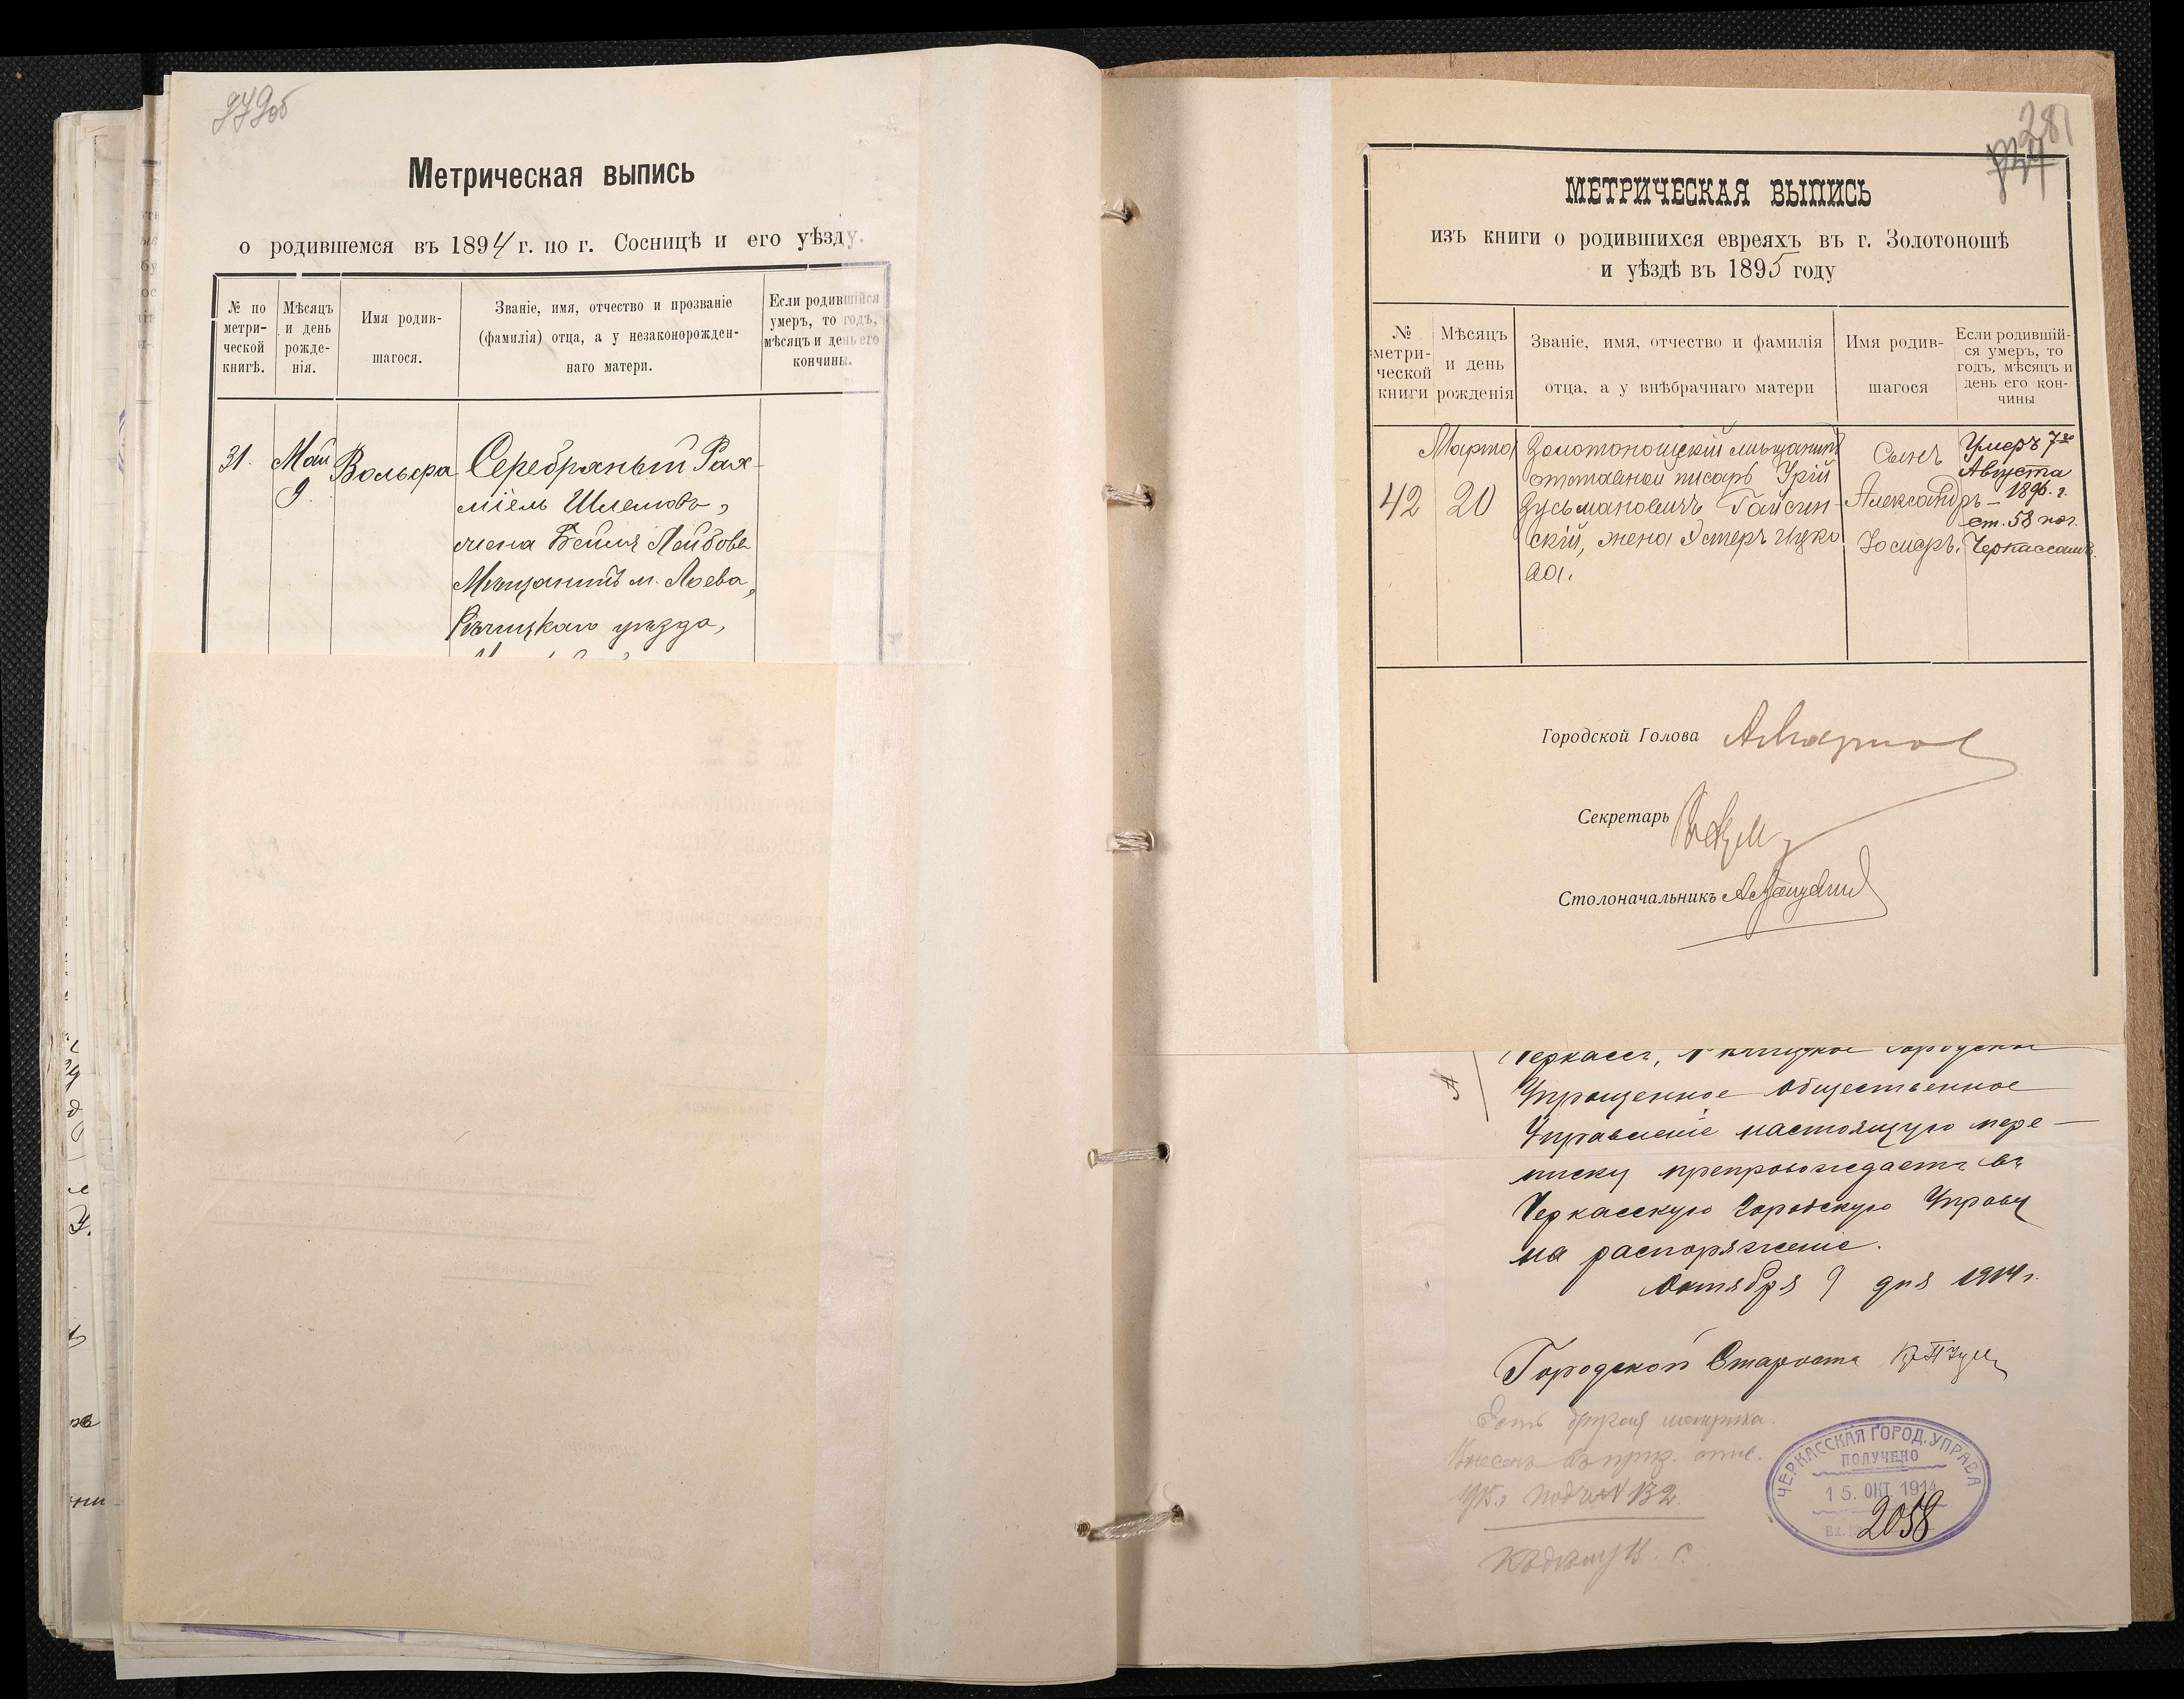 Метрическая выпись
о родившемся въ 1894 г. по г. Сосницѣ и его уѣзду.
№ по метри-ческой книгѣ.
Мѣсяцъ и день рожде-нія.
Имя родив-шагося.
Званіе, имя, отчество и прозваніе (фамилія) отца, а у незаконорожден-наго матери.
Если родившійся умеръ, то годъ, мѣсяцъ и день его кончины.
31.
Май
9.
Вольфа
Серебряный Рах-
міель Шлемовъ,
жена Бейля Лейбова
Мѣщанинъ м. Лоева,
Рѣчицкаго уѣзда,
281
МЕТРИЧЕСКАЯ ВЫПИСЬ
изъ книги о родившихся евреяхъ въ г. Золотоношѣ
и уѣздѣ въ 1895 году
№ метри-ческой книги
Мѣсяцъ и день рожденія
Званіе, имя, отчество и фамилія отца, а у внѣбрачнаго матери
Имя родив-шагося
Если родившій-ся умеръ, то годъ, мѣсяцъ и день его кон-чины
42
Марта
20
Золотоношскій мѣщанинъ
отставной писарь Урій
Зусьмановичъ Гайсин-
скій, жена Эстеръ Ицко
ва.
Сынъ
Александръ-
Юсиеръ.
Умеръ 7го
Августа
1896. г.
ст. 58 пог.
Черкассамъ.
Городской Голова
Секретарь
Столоначальникъ
Упрощенное Общественное
Управленіе настоящую пере-
писку препровождаетъ въ
Черкасскую Городскую Управу
на распоряженіе.
Октября 9 дня 1914 г.
Городской Староста
Есть другая метрика.
Внесенъ въ приз. спис.
1915 г. подъ № 132
Къ дѣлу В. С.
ЧЕРКАССКАЯ ГОРОД. УПРАВА
ПОЛУЧЕНО
15. ОКТ. 1914
Вх. 2058